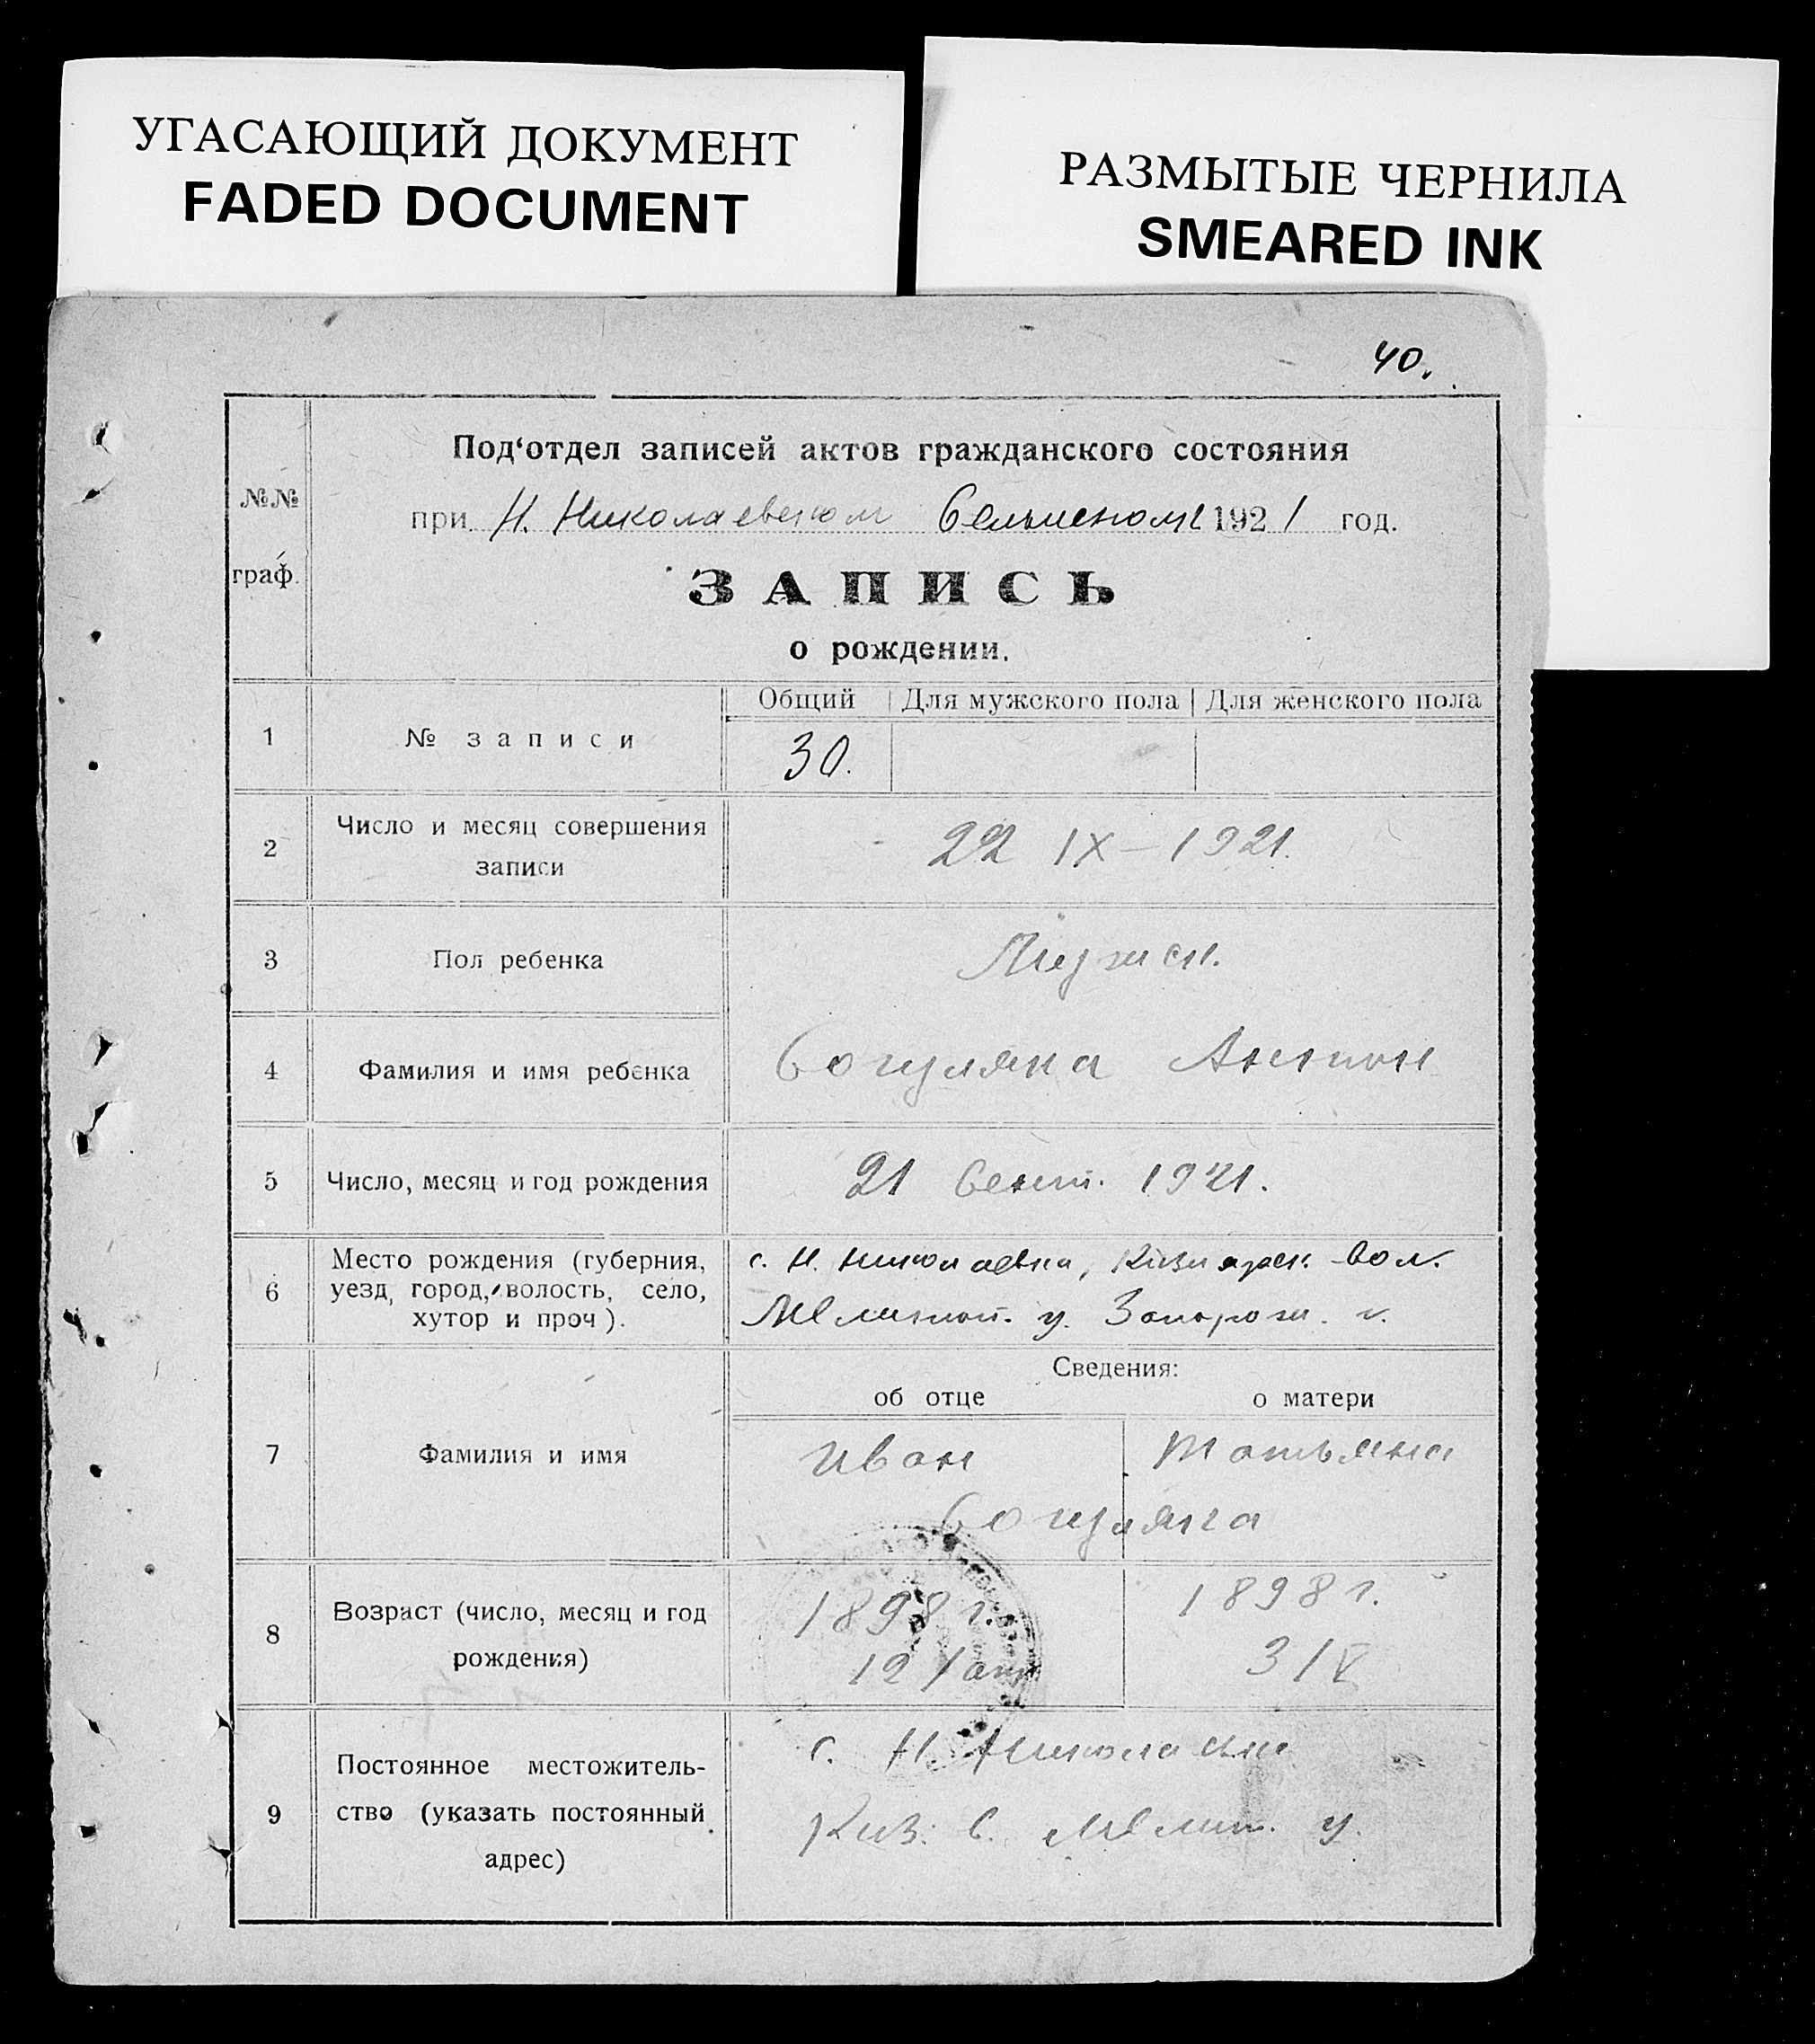 УГАСАЮЩИЙ ДОКУМЕНТ
FADED DOCUMENT
РАЗМЫТЫЕ ЧЕРНИЛА
SMEARED INK
40.
№№ граф.
Под‘отдел записей актов гражданского состояния
при Н. Николаевском 1921 год.
ЗАПИСЬ
о рождении.
Общий Для мужского пола Для женского пола
1 № записи 30.
2 Число и месяц совершения
записи
22 IX – 1921.
3 Пол ребенка Мужск.
4 Фамилия и имя ребенка Согуляка Антон
5 Число, месяц и год рождения 21 Сент. 1921.
6 Место рождения (губерния,
уезд, город, волость, село,
хутор и проч).
с. Н. Николаевка, Кизиярск. вол.
Мелитоп. у. Запорож. г.
Сведения:
об отце о матери
7 Фамилия и имя
Иван Татьяна
Согуляка
8 Возраст (число, месяц и год
рождения)
1898 г. 1898 г.
12
9 Постоянное местожитель-
ство (указать постоянный
адрес)
с. Н. Николаевка
Киз. в. Мелит. у.